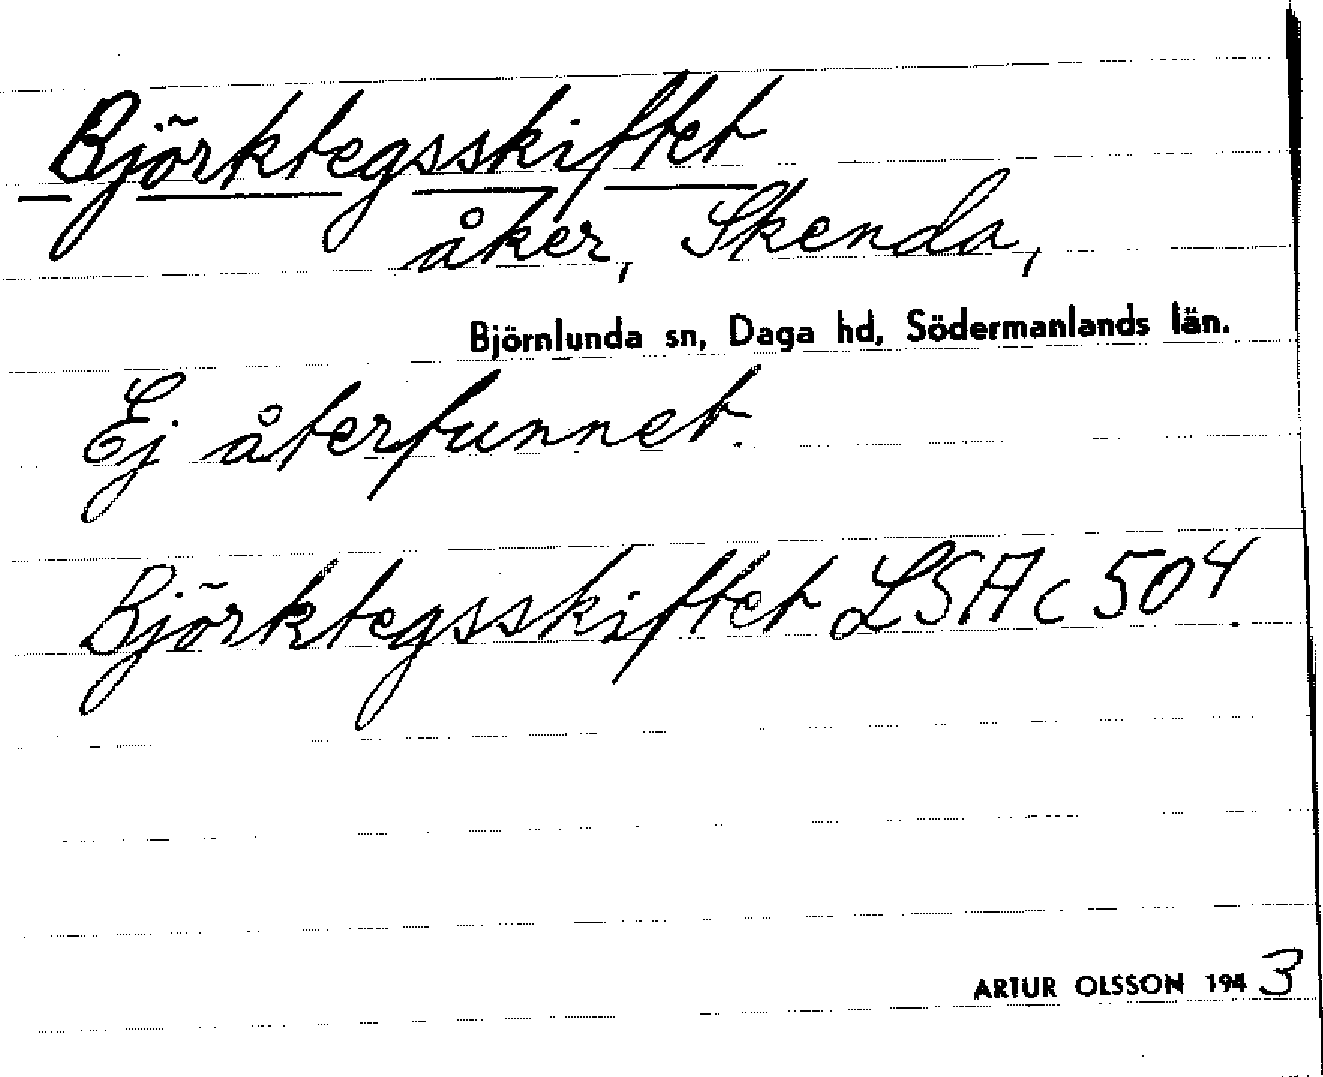 Björktegsskiftet
åker, Skenda,
Björnlunda sn, Daga hd, Södermanlands län.
Ej återfunnet.
Björktegsskiftet LSA c 504.
ARTUR OLSSON 1943